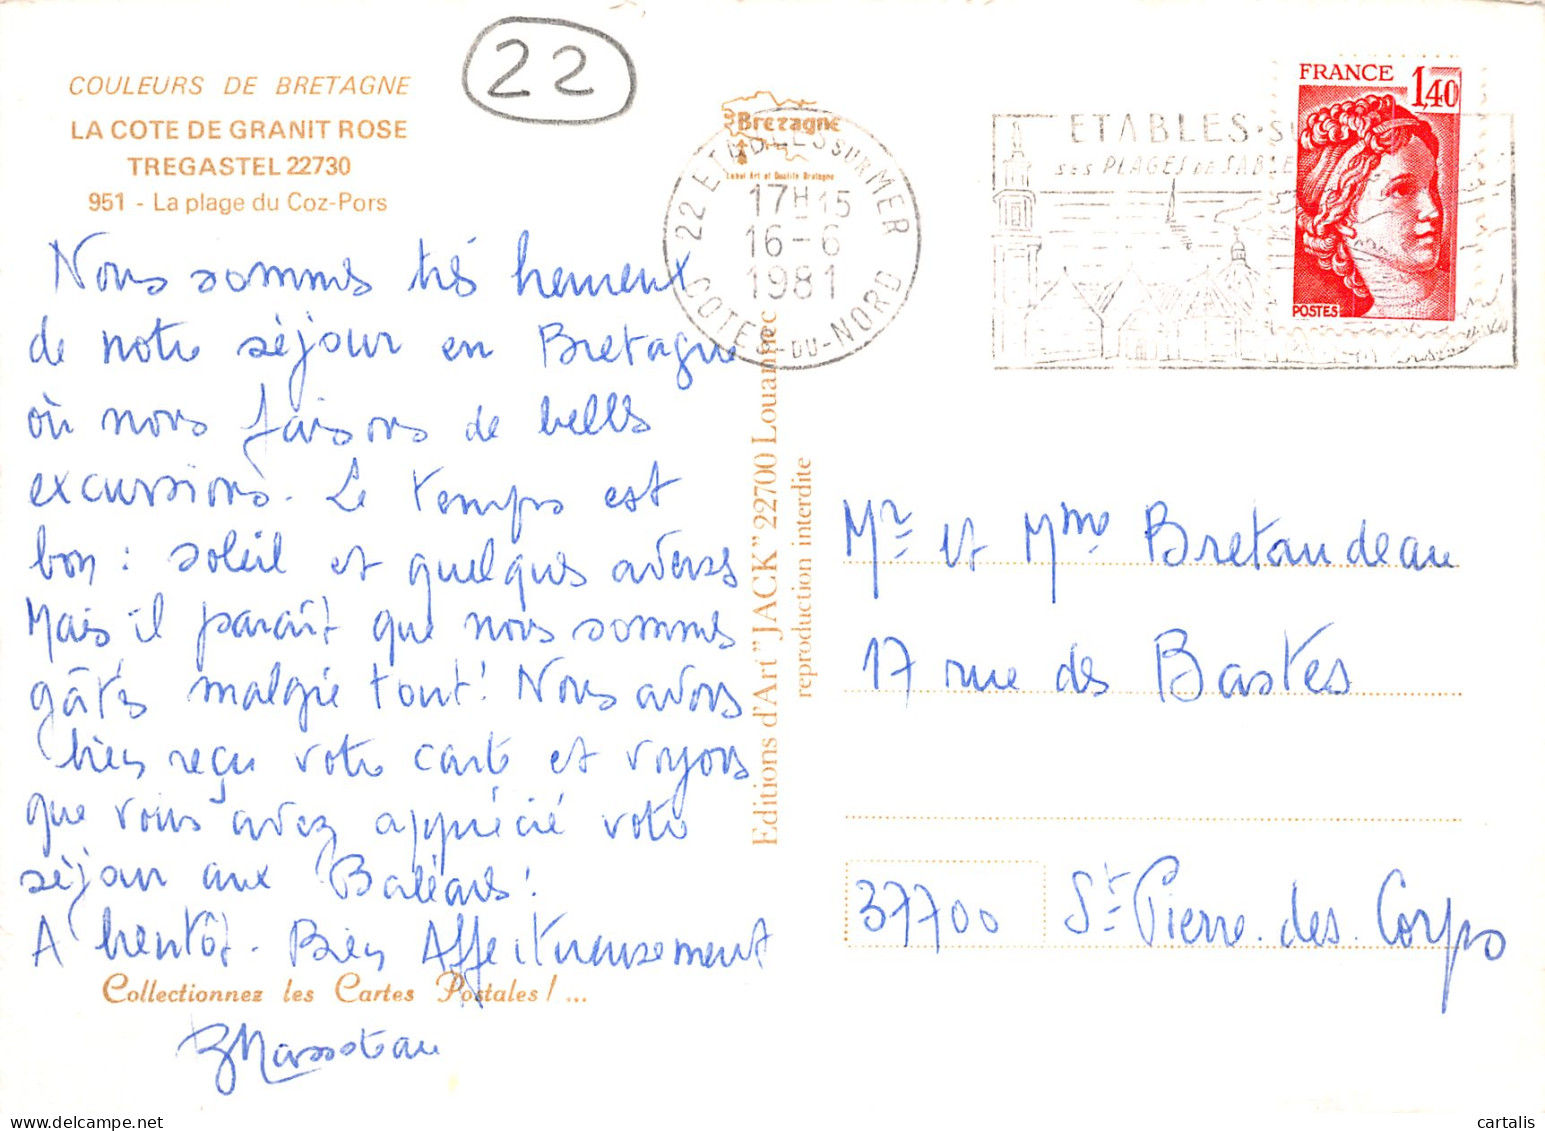 COULEURS DE BRETAGNE
LA COTE DE GRANIT ROSE
TREGASTEL 22730
951 - La plage du Coz-Pors
22
Nous sommes très heureux
de notre séjour en Bretagne
où nous faisons de belles
excursions. Le temps est
bon : soleil et quelques averses
Mais il paraît que nous sommes
gâtés malgré tout! Nous avons
bien reçu votre carte et voyons
que vous avez apprécié votre
séjour aux Baléares!
A bientôt. Bien Affectueusement
Collectionnez les Cartes Postales! ...
Bretagne
Label Art et Qualité Bretagne
22 ETABLES SUR MER
17H15
16-6
1981
COTES-DU-NORD
ETABLES-S
SES PLAGES DE SABLE
FRANCE 1,40
POSTES
Editions d'Art "JACK" 22700 Louannec
reproduction interdite
Mr et Mme Bretaudeau
17 rue des Bastes
37700 St-Pierre.des.Corps
cartalis